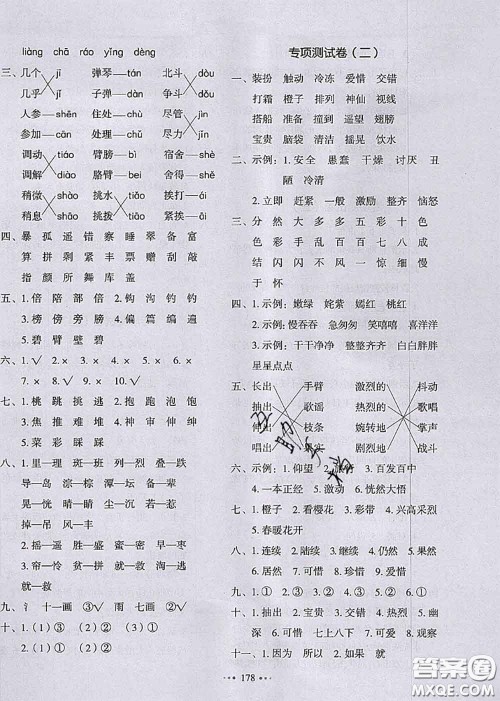 liàng chā ráo yīng dèng
三、几个 jī 弹琴 tán 北斗 dòu
几乎 jǐ 子弹 dàn 争斗 dǒu
人参 shēn 住处 chù 尽管 jìn
参加 cān 处理 chǔ 尽力 jǐn
调动 tiáo 臂膀 bì 宿舍 shè
调解 diào 胳臂 bei 舍弃 shě
稍微 shào 挑水 tiǎo 挨打 ái
稍息 shāo 挑拨 tiāo 紧挨 āi
四、暴 孤 遥 错 察 睡 翠 备 富
算 拼 剥 刺 激 蹲 式 敲 刻
指 颜 所 舞 库 盖
五、1.倍 陪 部 培 2.钩 沟 钓
3.榜 傍 旁 膀 4.偏 篇 编 遍
5.碧 臂 壁
六、1.√ 2.× 3.× 4.× 5.× 6.√
7.× 8.× 9.× 10.√ 11.×
七、1.桃 跳 挑 逃 2.抱 跑 饱 泡
3.焦 推 难 堆 4.神 审 伸 绅
5.菜 彩 睬 踩
八、1.里—理 斑—班 列—烈 叠—跌
导—岛 凉—棕 潭—坛 磊—垒
浆—桨 长—常 尘—沉 若—惹
2.摇—遥 显—险 弟—第 早—枣
3.帘—怜 贫—拼 就—救 淘—逃
就—救
九、氵 十一画 ③√ 雨 七画 ②√
十、1.(1)③ (2)① 2.(1)① (2)③
3.(1)② (2)①
专项测试卷(二)
一、装扮 触动 冷冻 爱惜 交错
打霜 橙子 排列 神仙 视线
搭船 准备 撞到 遥望 翅膀
宝贵 脑袋 清洁 摇晃 饮水
二、示例:1.安全 愚蠢 干燥 讨厌 丑
陋 冷清
2.立即 赶紧 一般 激励 整齐 恼怒
三、分 然 大 多 多 五 彩 十 色
色 彩 手 乱 百 七 八 成
结 闪 闪 不 一 惊 细 慢
于 怀
四、1.示例:嫩绿 姹紫 嫣红 桃红
2.示例:慢吞吞 急匆匆 笑嘻嘻 喜洋洋
3.示例:干干净净 整整齐齐 白白胖胖
星星点点
五、长出 手臂 激烈的 抖动
抽出 歌谣 热烈的 歌唱
伸出 枝条 婉转地 掌声
唱出 果实 剧烈地 战斗
六、示例:1.仰望 2.旅行 3.百发百中
4.一本正经 5.激动 6.恍然大悟
七、1.橙子 2.看樱花 3.彩带 4.兴高采烈
5.春暖花开
八、1.连续 2.陆续 3.继续 4.仍然 5.果然
6.居然 7.可惜 8.珍惜 9.爱惜
九、1.① 2.② 3.① 4.② 5.① 6.②
十、1.抽出 2.宝贵 3.交错 4.热烈 5.幽
深 6.可惜 7.七上八下 7.可爱 8.观察
十一、1.因为 所以 2.如果 就
178
答案圈
MXQE.COM